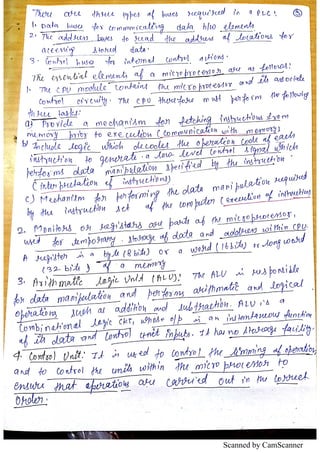 There are three types of buses required in a PLC: 5
1. Data buses for communicating data b/w elements
2. The address buses to read the address of locations for
accessing stored data.
3. Control buses for internal control actions.
The essential elements of a microprocessor are as follows:
1. The CPU module contains the microprocessor and its associate
control circuitry. The CPU therefore must perform the following
three tasks:
a) Provide a mechanism for fetching instructions from
memory prior to execution (communication with memory)
b) Include logic which decodes the operation code of each
instruction to generate a low level control signal which
performs data manipulation specified by the instruction
(interpretation of instructions)
c) Mechanism for performing the data manipulation required
by the instruction set of the computer (execution of instructions
2. Monitors or registars are parts of the microprocessor,
used for temporary storage of data and address within CPU
A register is a byte (8 bits) or a word (16 bits) or long word
(32-bits) of a memory
3. Arithmatic Logic Unit (ALU): The ALU is responsible
for data manipulation and performs arithmetic and logical
operations such as addition and subtraction. ALU is a
Combinational logic ckt, whose o/p is an instantaneous function
of its data and control unit inputs. It has no storage facility.
4. Control Unit: It is used to control the timming of operation
and to control the units within the microprocessor to
ensure that operations are carried out in the correct
order.
Scanned by CamScanner